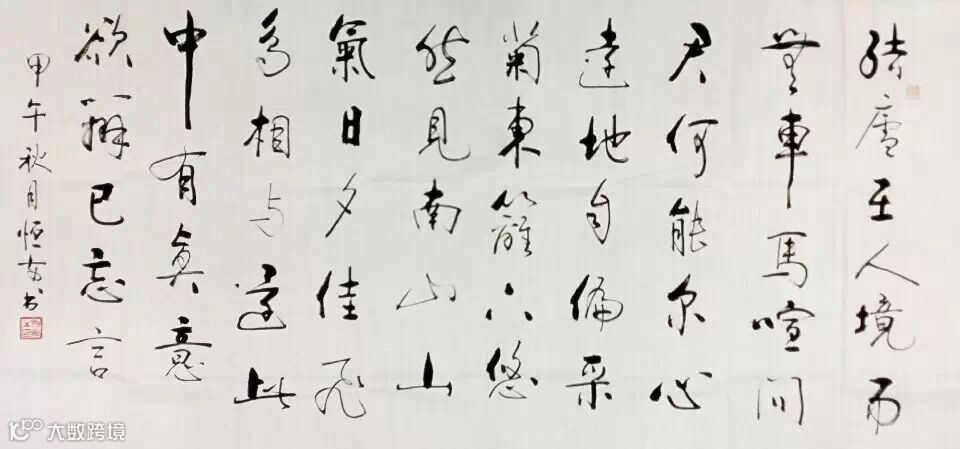 結廬在人境而
無車馬喧問
君何能尔心
遠地自偏采
菊東籬下悠
然見南山山
氣日夕佳飛
鳥相与還此
中有真意
欲辨已忘言
甲午秋月恒书
大数跨境